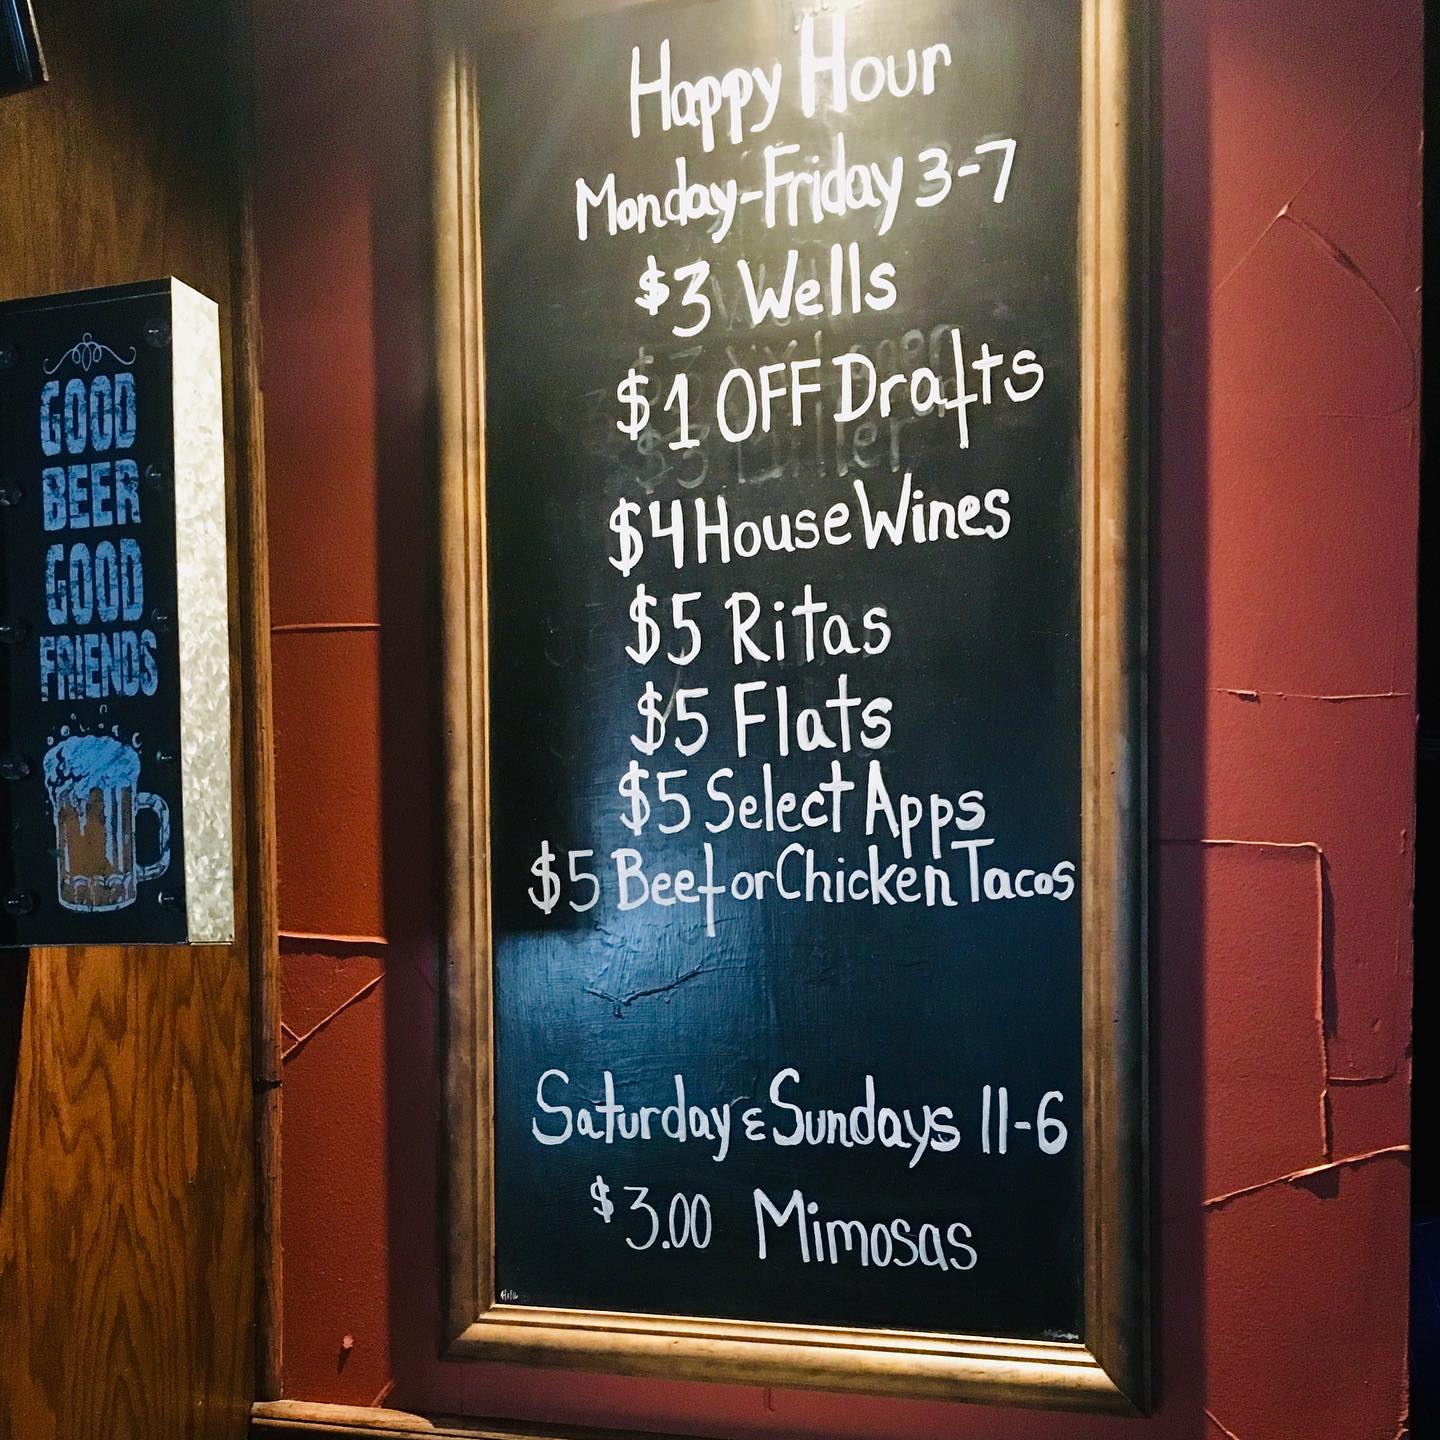 GOOD
BEER
GOOD
FRIENDS
Happy Hour
Monday-Friday 3-7
$3 Wells
$1 OFF Drafts
$4 House Wines
$5 Ritas
$5 Flats
$5 Select Apps
$5 Beef or Chicken Tacos
Saturday & Sundays 11-6
$3.00 Mimosas